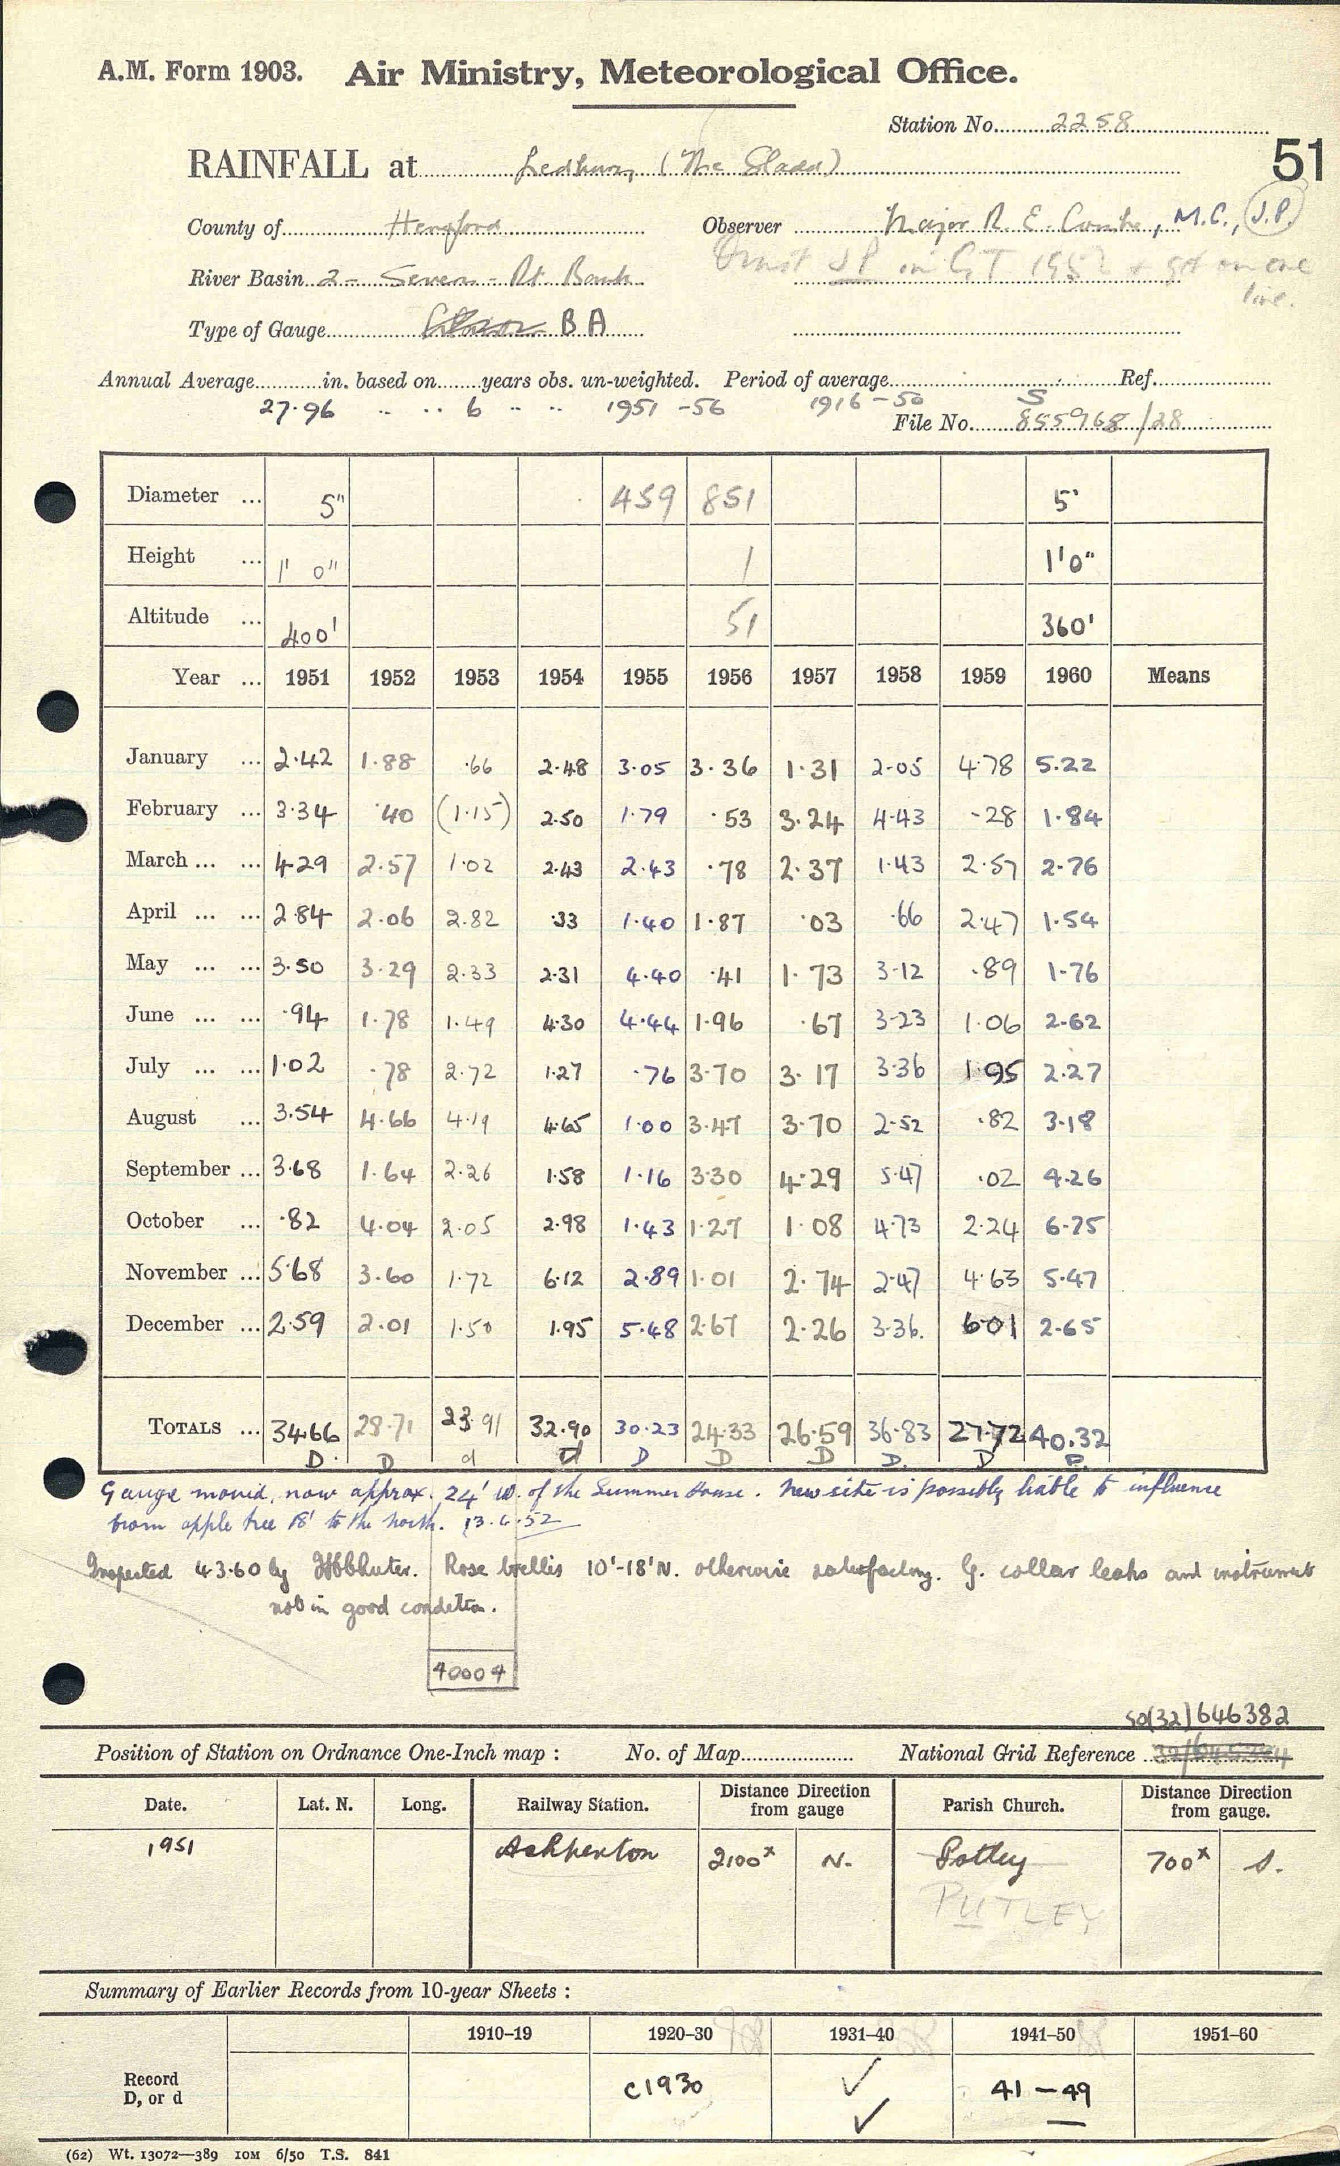 A.M. Form 1903. Air Ministry, Meteorological Office.
Station No. 2258
51
RAINFALL at Ledbury (The Gladd)
County of Hereford Observer Major R. E. Combe, M.C., J.P.
River Basin 2 - Severn - Rt. Bank omit JP in GT 1952 + get on one
line.
Type of Gauge BA
Annual Average in. based on years obs. un-weighted. Period of average Ref.
27.96 .. .. 6 .. .. 1951 - 56 1916 - 50 S
File No. 855968/28
Diameter ... 5" 459 851 5'
Height ... 1' 0" 1 1'0"
Altitude ... 400' 51 360'
Year ... 1951 1952 1953 1954 1955 1956 1957 1958 1959 1960 Means
January ... 2.42 1.88 .66 2.48 3.05 3.36 1.31 2.05 4.78 5.22
February ... 3.34 .40 (1.15) 2.50 1.79 .53 3.24 4.43 .28 1.84
March ... ... 4.29 2.57 1.02 2.43 2.43 .78 2.37 1.43 2.57 2.76
April ... ... 2.84 2.06 2.82 .33 1.40 1.87 .03 .66 2.47 1.54
May ... ... 3.50 3.29 2.33 2.31 4.40 .41 1.73 3.12 .89 1.76
June ... ... .94 1.78 1.49 4.30 4.44 1.96 .67 3.23 1.06 2.62
July ... ... 1.02 .78 2.72 1.27 .76 3.70 3.17 3.36 1.95 2.27
August ... 3.54 4.66 4.19 4.65 1.00 3.47 3.70 2.52 .82 3.18
September ... 3.68 1.64 2.26 1.58 1.16 3.30 4.29 5.47 .02 4.26
October ... .82 4.04 2.05 2.98 1.43 1.27 1.08 4.73 2.24 6.75
November ... 5.68 3.60 1.72 6.12 2.89 1.01 2.74 2.47 4.63 5.47
December ... 2.59 2.01 1.50 1.95 5.48 2.67 2.26 3.36. 6.01 2.65
TOTALS ... 34.66 28.71 23.91 32.90 30.23 24.33 26.59 36.83 27.72 40.32
D. D d d D D D D. D D.
Gauge moved, now approx. 24' W. of the Summer House. New site is possibly liable to influence
from apple tree 18' to the north. 13.6.52
Inspected 4.3.60 by Rose trellis 10'-18' N. otherwise satisfactory. G. collar leaks and instrument
not in good condition.
40004
SO(32)646382
Position of Station on Ordnance One-Inch map : No. of Map National Grid Reference
Date. Lat. N. Long. Railway Station. Distance Direction from gauge Parish Church. Distance Direction from gauge.
1951 Ashperton 2100x N. Potley 700x S.
PUTLEY
Summary of Earlier Records from 10-year Sheets :
1910–19 1920–30 1931–40 1941–50 1951–60
Record
D, or d c1930 ✓ 41 - 49
✓
(62) Wt. 13072—389 10M 6/50 T.S. 841